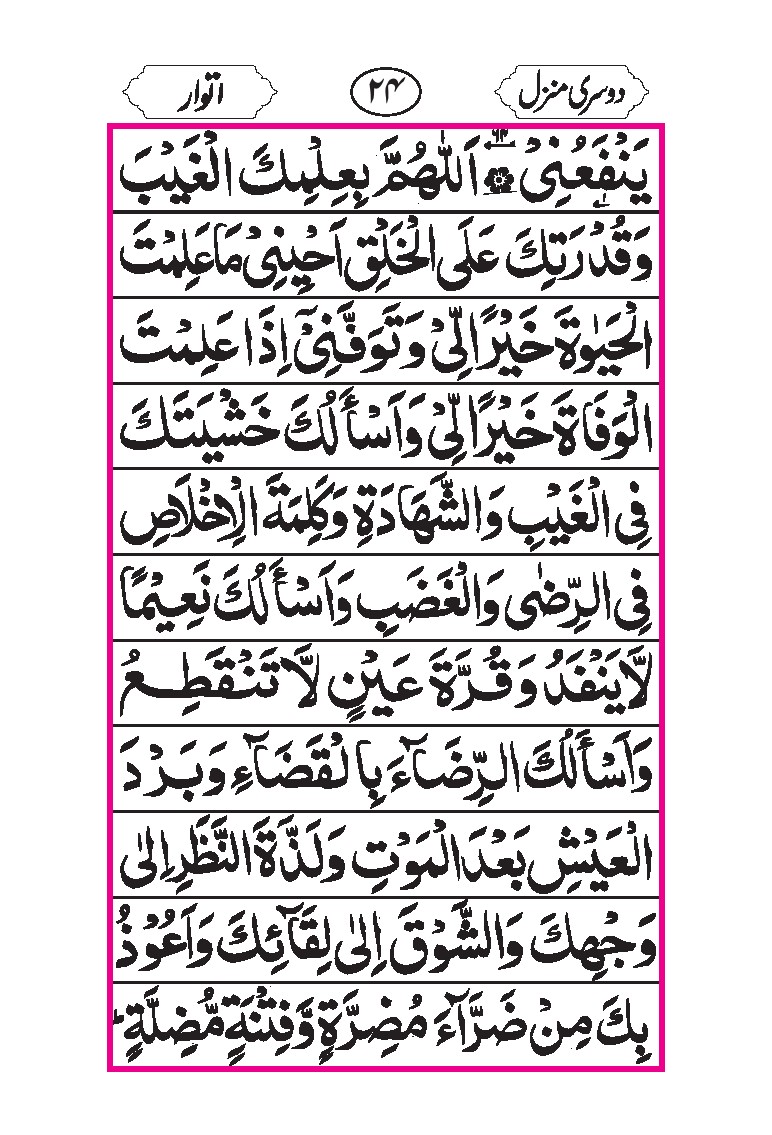 دوسری منزل ۲۴ اتوار
يَنْفَعُنِىْ ۶۳ اَللّٰهُمَّ بِعِلْمِكَ الْغَيْبَ
وَقُدْرَتِكَ عَلَى الْخَلْقِ اَحْيِنِىْ مَا عَلِمْتَ
الْحَيٰوةَ خَيْرًا لِّىْ وَتَوَفَّنِىْٓ اِذَا عَلِمْتَ
الْوَفَاةَ خَيْرًا لِّىْ وَاَسْأَلُكَ خَشْيَتَكَ
فِى الْغَيْبِ وَالشَّهَادَةِ وَكَلِمَةَ الْاِخْلَاصِ
فِى الرِّضٰى وَالْغَضَبِ وَاَسْأَلُكَ نَعِيْمًا
لَّا يَنْفَدُ وَقُرَّةَ عَيْنٍ لَّا تَنْقَطِعُ
وَاَسْأَلُكَ الرِّضَآءَ بِالْقَضَآءِ وَبَرْدَ
الْعَيْشِ بَعْدَ الْمَوْتِ وَلَذَّةَ النَّظَرِ اِلٰى
وَجْهِكَ وَالشَّوْقَ اِلٰى لِقَآئِكَ وَاَعُوْذُ
بِكَ مِنْ ضَرَّآءَ مُضِرَّةٍ وَّفِتْنَةٍ مُّضِلَّةٍ ؕ